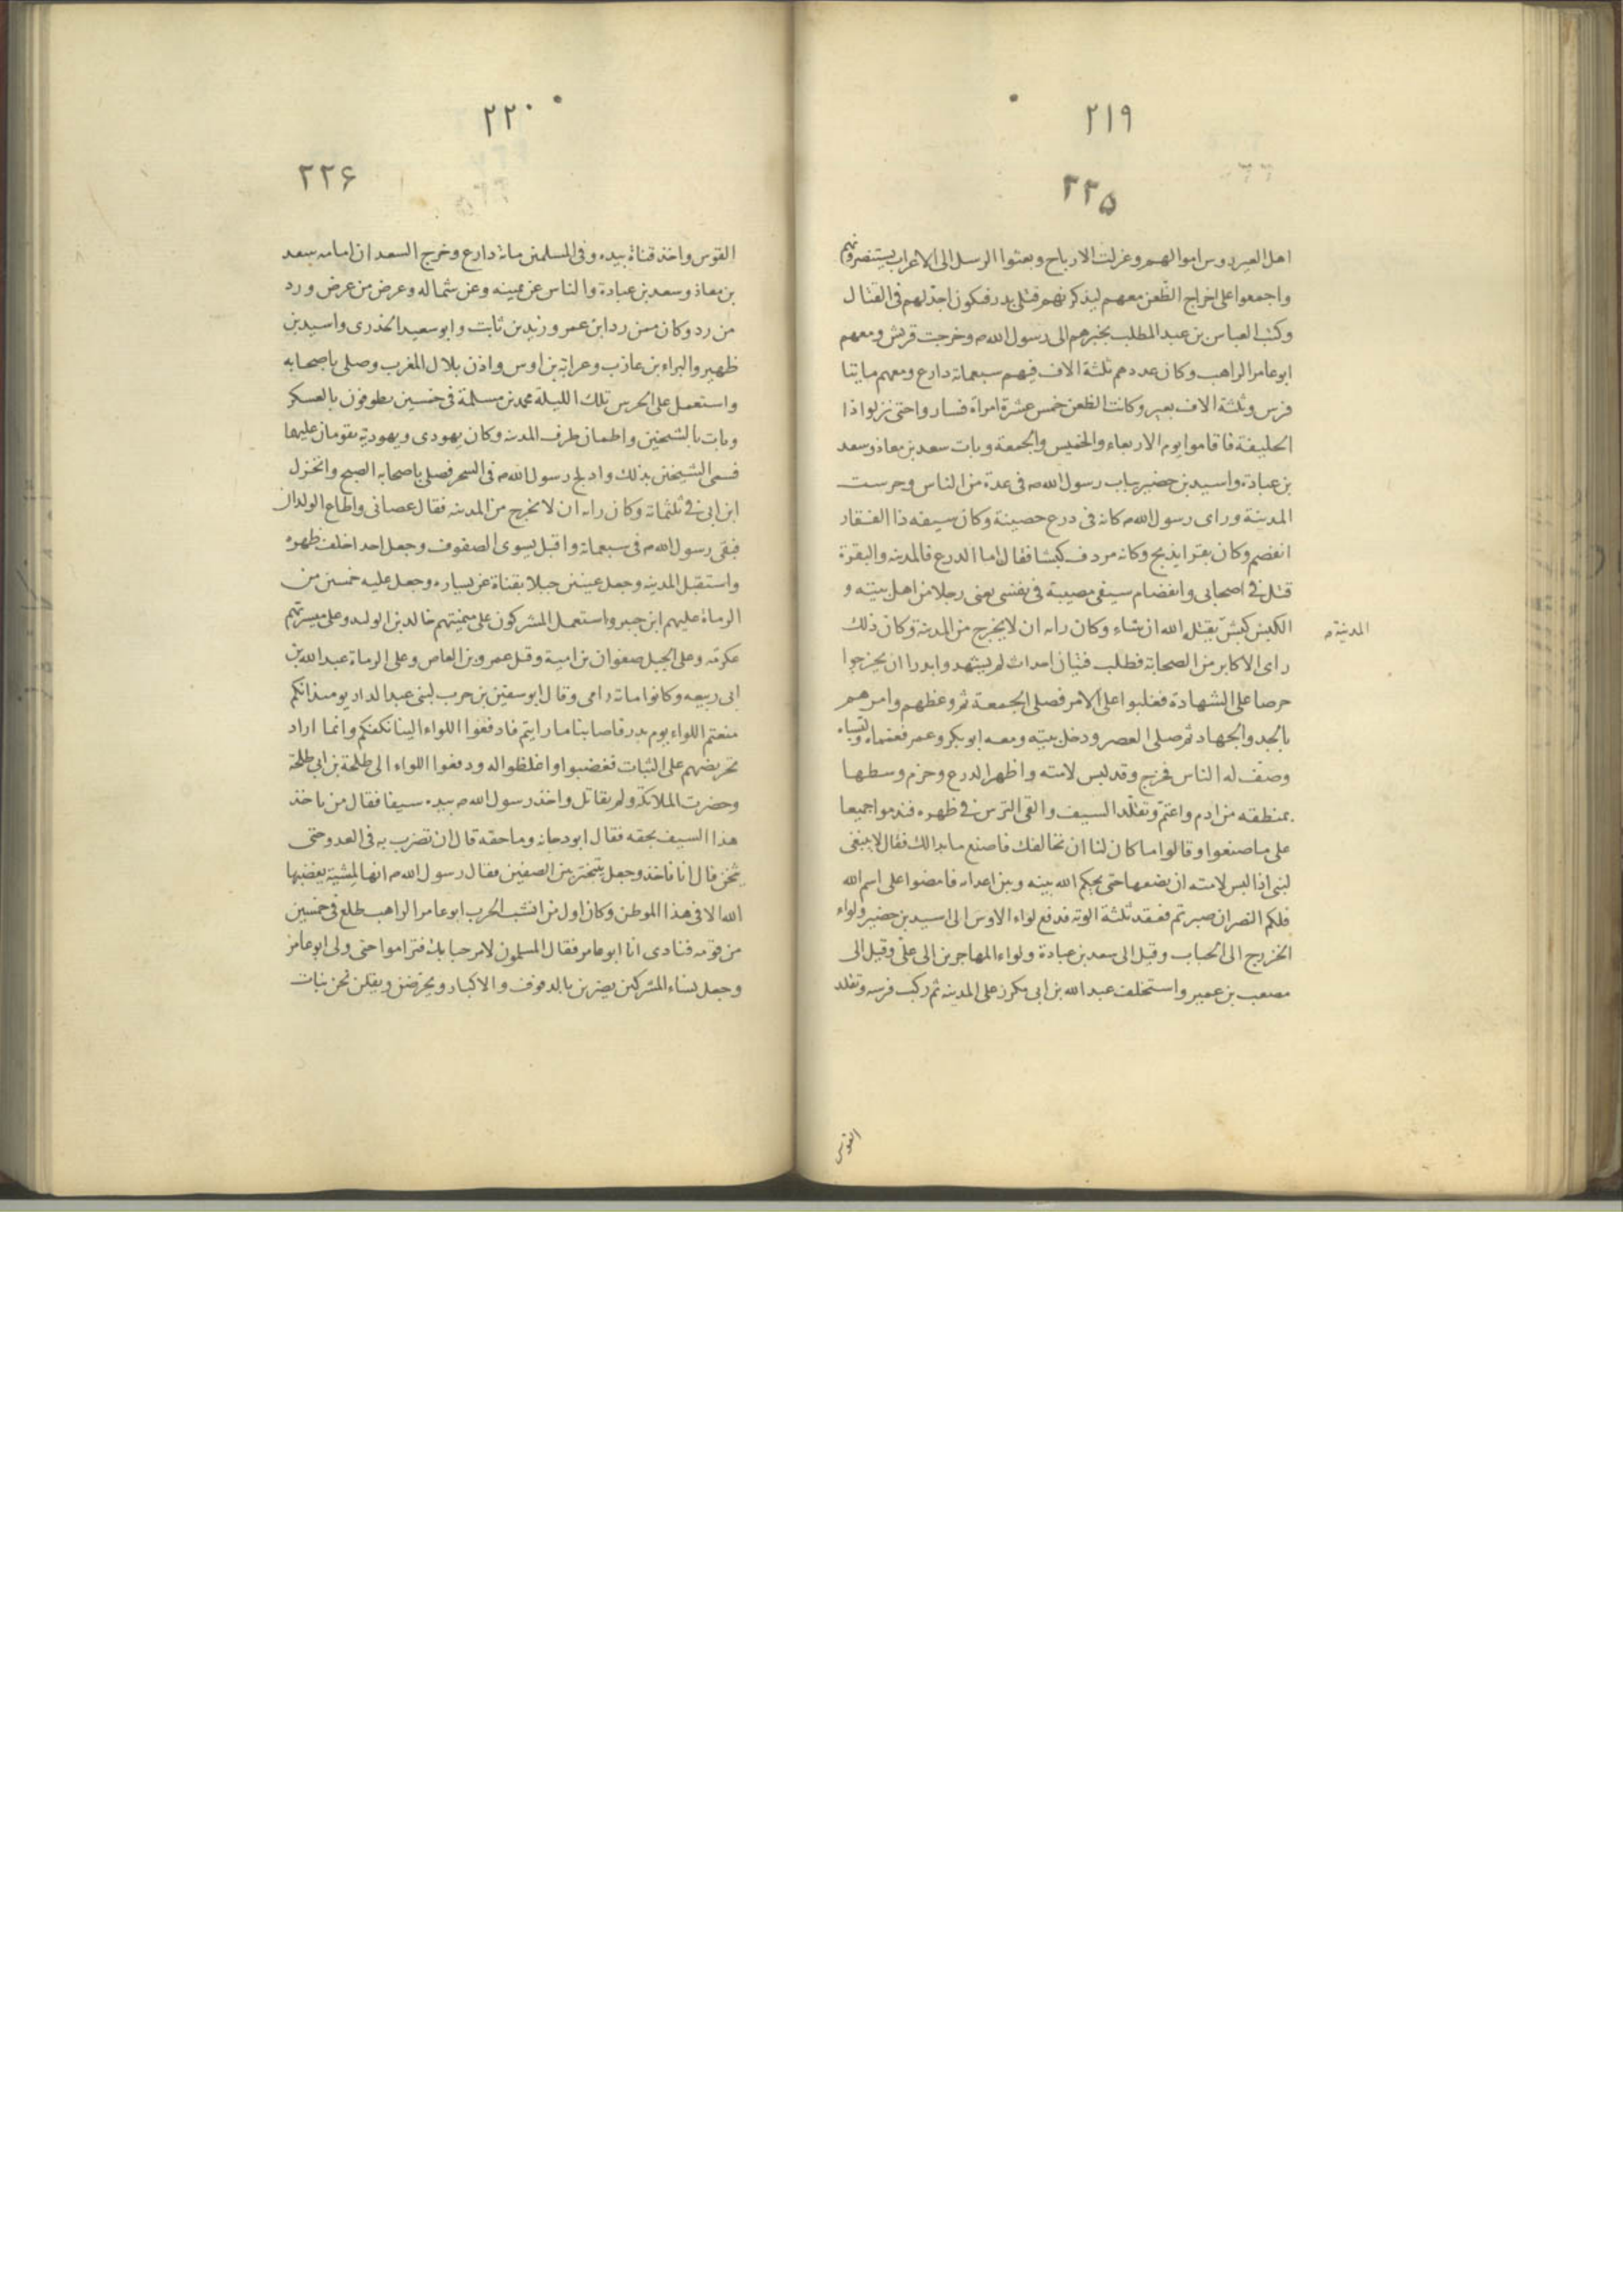 ٢١٩
٢٢۵
اهل العير روس اموالهم وعزلت الارباح وبعثوا الرسل الى الاعراب يستنصرونهم
واجمعوا على اخراج الظعن معهم ليذكرنهم قتلى بدر فيكون اجد لهم فى القتال
وكتب العباس بن عبد المطلب بخبرهم الى رسول الله ص وخرجت قريش ومعهم
ابو عامر الراهب وكان عددهم ثلثة الاف فيهم سبعماة دارع ومعهم مايتا
فرس وثلثة الاف بعير وكانت الظعن خمس عشرة امراة فساروا حتى نزلوا ذا
الحليفة فاقاموا يوم الاربعاء والخميس والجمعة وبات سعد بن معاذ وسعد
بن عبادة واسيد بن حضير بباب رسول الله ص فى عدة من الناس وحرست
المدينة وراى رسول الله ص كانه فى درع حصينة وكان سيفه ذا الفقار
انفصم وكان بقرا يذبح وكانه مردف كبشا فقال اما الدرع فالمدينه والبقرة
قتل فى اصحابى وانفصام سيفى مصيبة فى نفسى يعنى رجلا من اهل بيته و
الكبش كبش يقتله الله ان شاء وكان رايه ان لا يخرج من المدينة وكان ذلك
المدينة ص
راى الاكابر من الصحابة فطلب فتيان احداث لم يشهدوا بدرا ان يخرجوا
حرصا على الشهادة فغلبوا على الامر فصلى الجمعة ثم وعظهم وامرهم
بالجد والجهاد ثم صلى العصر ودخل بيته ومعه ابو بكر وعمر فعمماه ولبساه
وصف له الناس فخرج وقد لبس لامته واظهر الدرع وحزم وسطها
بمنطقه من ادم واعتم وتقلد السيف والقى الترس فى ظهره فندموا جميعا
على ما صنعوا وقالوا ما كان لنا ان نخالفك فاصنع ما بدا لك فقال لا ينبغى
لنبى اذا لبس لامته ان يضعها حتى يحكم الله بينه وبين اعدايه فامضوا على اسم الله
فلكم النصر ان صبرتم فعقد ثلثة الوية فدفع لواء الاوس الى اسيد بن حضير ولواء
الخزرج الى الحباب وقيل الى سعد بن عبادة ولواء المهاجرين الى على وقيل الى
مصعب بن عمير واستخلف عبد الله بن ابى مكرز على المدينه ثم ركب فرسه وتقلد
القوس
٢٢٠
٢٢۶
القوس واخذ قناة بيده وفى المسلمين ماة دارع وخرج السعدان امامه سعد
بن معاذ وسعد بن عبادة والناس عن يمينه وعن شماله وعرض من عرض ورد
من رد وكان ممن رد ابن عمر وزيد بن ثابت وابو سعيد الخدرى واسيد بن
ظهير والبراء بن عازب وعرابة بن اوس واذن بلال المغرب وصلى باصحابه
واستعمل على الحرس تلك الليلة محمد بن مسلمة فى خمسين يطوفون بالعسكر
وبات بالشيخين واطمان طرف المدينه وكان يهودى ويهودية يقومان عليها
فسمى الشيخين بذلك وادلج رسول الله ص فى السحر فصلى باصحابه الصبح وانخزل
ابن ابى فى ثلثماة وكان رايه ان لا يخرج من المدينه فقال عصانى واطاع الولدان
فبقى رسول الله ص فى سبعماة واقبل يسوى الصفوف وجعل احدا خلف ظهره
واستقبل المدينه وجعل عينين جبلا بقناة عن يساره وجعل عليه خمسين من
الرماة عليهم ابن جبير واستعمل المشركون على ميمنتهم خالد بن الوليد وعلى ميسرتهم
عكرمة وعلى الخيل صفوان بن امية وقيل عمرو بن العاص وعلى الرماة عبد الله بن
ابى ربيعه وكانوا ماة رامى وقال ابو سفين بن حرب لبنى عبد الدار يومئذ انكم
منعتم اللواء يوم بدر فاصابنا ما رايتم فادفعوا اللواء الينا نكفكم وانما اراد
تحريضهم على الثبات فغضبوا واغلظوا له ودفعوا اللواء الى طلحة بن ابى طلحة
وحضرت الملائكة ولم يقاتل واخذ رسول الله ص بيده سيفا فقال من ياخذ
هذا السيف بحقه فقال ابو دجانه وما حقه قال ان تضرب به فى العدو حتى
يثخن قال انا فاخذ وجعل يتبختر بين الصفين فقال رسول الله ص انها لمشية يبغضها
الله الا فى هذا الموطن وكان اول من انشب الحرب ابو عامر الراهب طلع فى خمسين
من قومه فنادى انا ابو عامر فقال المسلمون لا مرحبا بك فتراموا حتى ولى ابو عامر
وجعل نساء المشركين يضربن بالدفوف والاكبار ويحرضن ويقلن نحن بنات